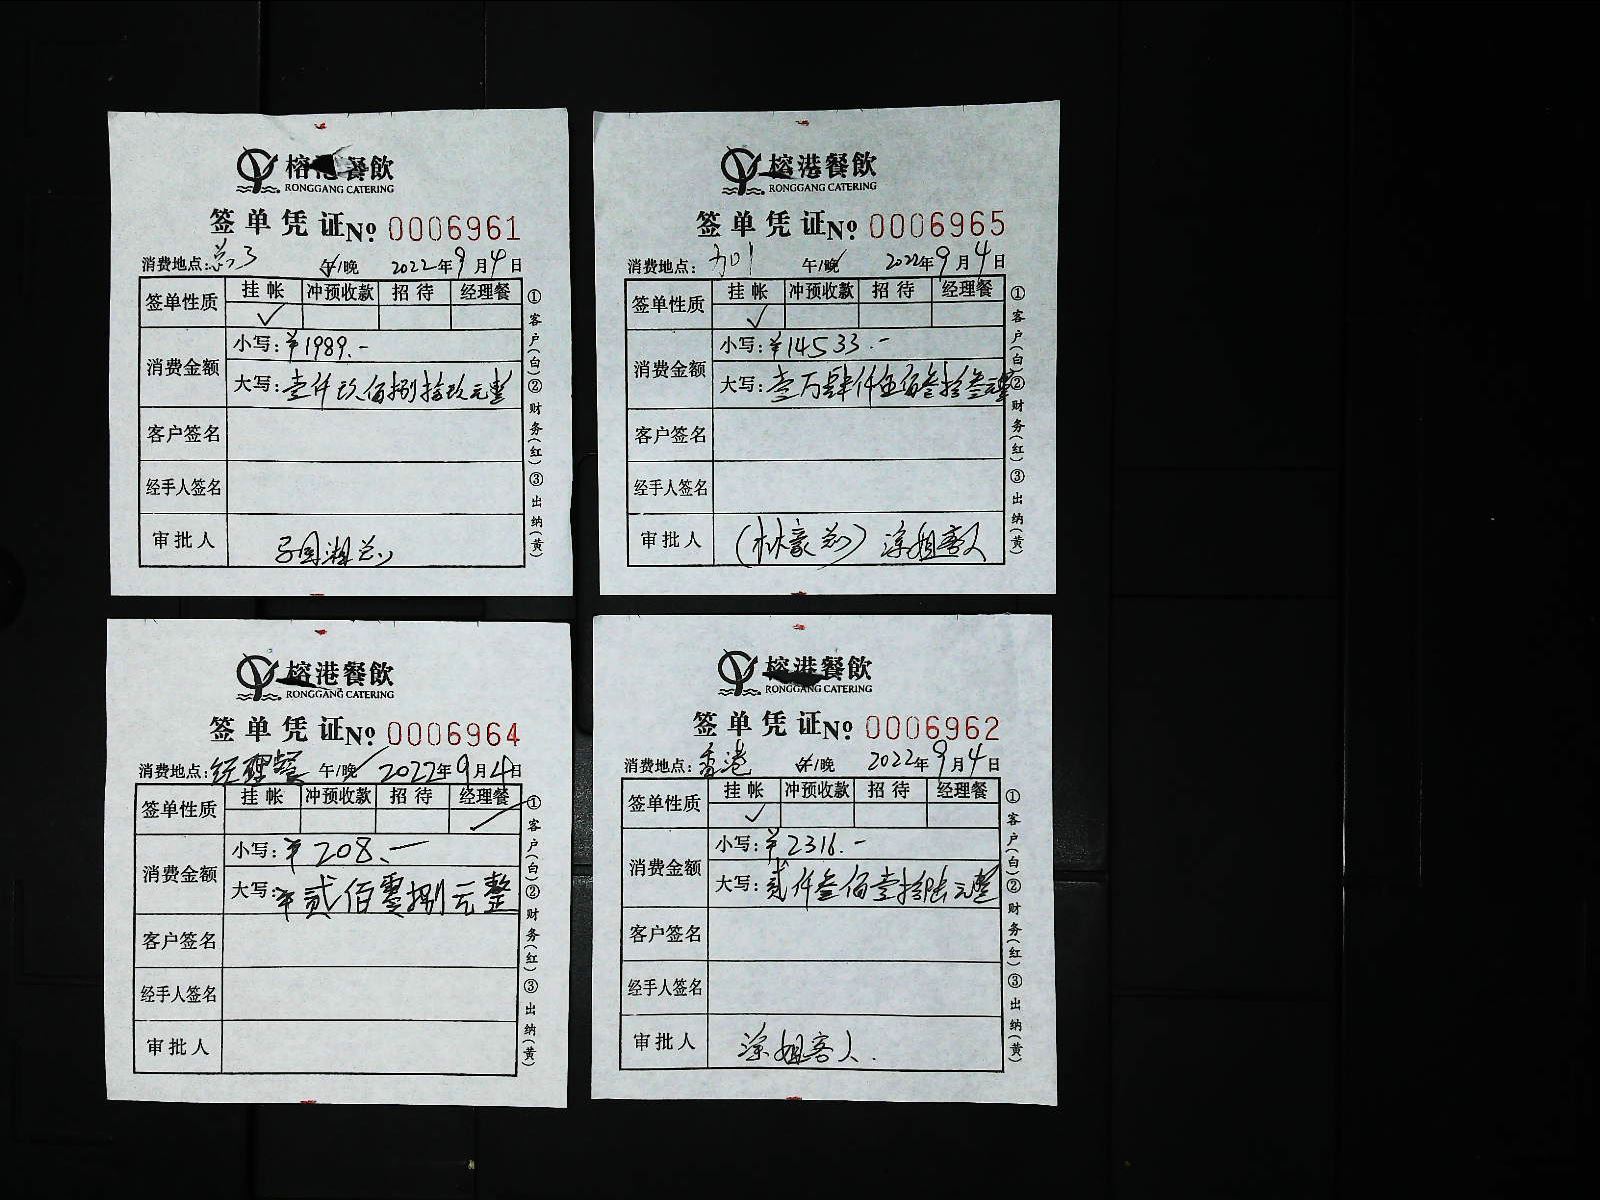 榕港餐飲
RONGGANG CATERING
签单凭证 № 0006961
消费地点: 午/晚 2022年9月4日
签单性质 挂帐 冲预收款 招待 经理餐
✓
消费金额 小写:¥1989.-
大写:壹仟玖佰捌拾玖元整
客户签名
经手人签名
审批人
①客户(白)②财务(红)③出纳(黄)
榕港餐飲
RONGGANG CATERING
签单凭证 № 0006965
消费地点: 午/晚 2022年9月4日
签单性质 挂帐 冲预收款 招待 经理餐
✓
消费金额 小写:¥14533.-
大写:壹万肆仟伍佰叁拾叁元整
客户签名
经手人签名
审批人 (林豪总) 涂姐客人
①客户(白)②财务(红)③出纳(黄)
榕港餐飲
RONGGANG CATERING
签单凭证 № 0006964
消费地点:经理餐 午/晚 2022年9月4日
签单性质 挂帐 冲预收款 招待 经理餐
✓
消费金额 小写:¥208.-
大写:¥贰佰零捌元整
客户签名
经手人签名
审批人
①客户(白)②财务(红)③出纳(黄)
榕港餐飲
RONGGANG CATERING
签单凭证 № 0006962
消费地点:香港 午/晚 2022年9月4日
签单性质 挂帐 冲预收款 招待 经理餐
✓
消费金额 小写:¥2316.-
大写:贰仟叁佰壹拾陆元整
客户签名
经手人签名
审批人 涂姐客人.
①客户(白)②财务(红)③出纳(黄)